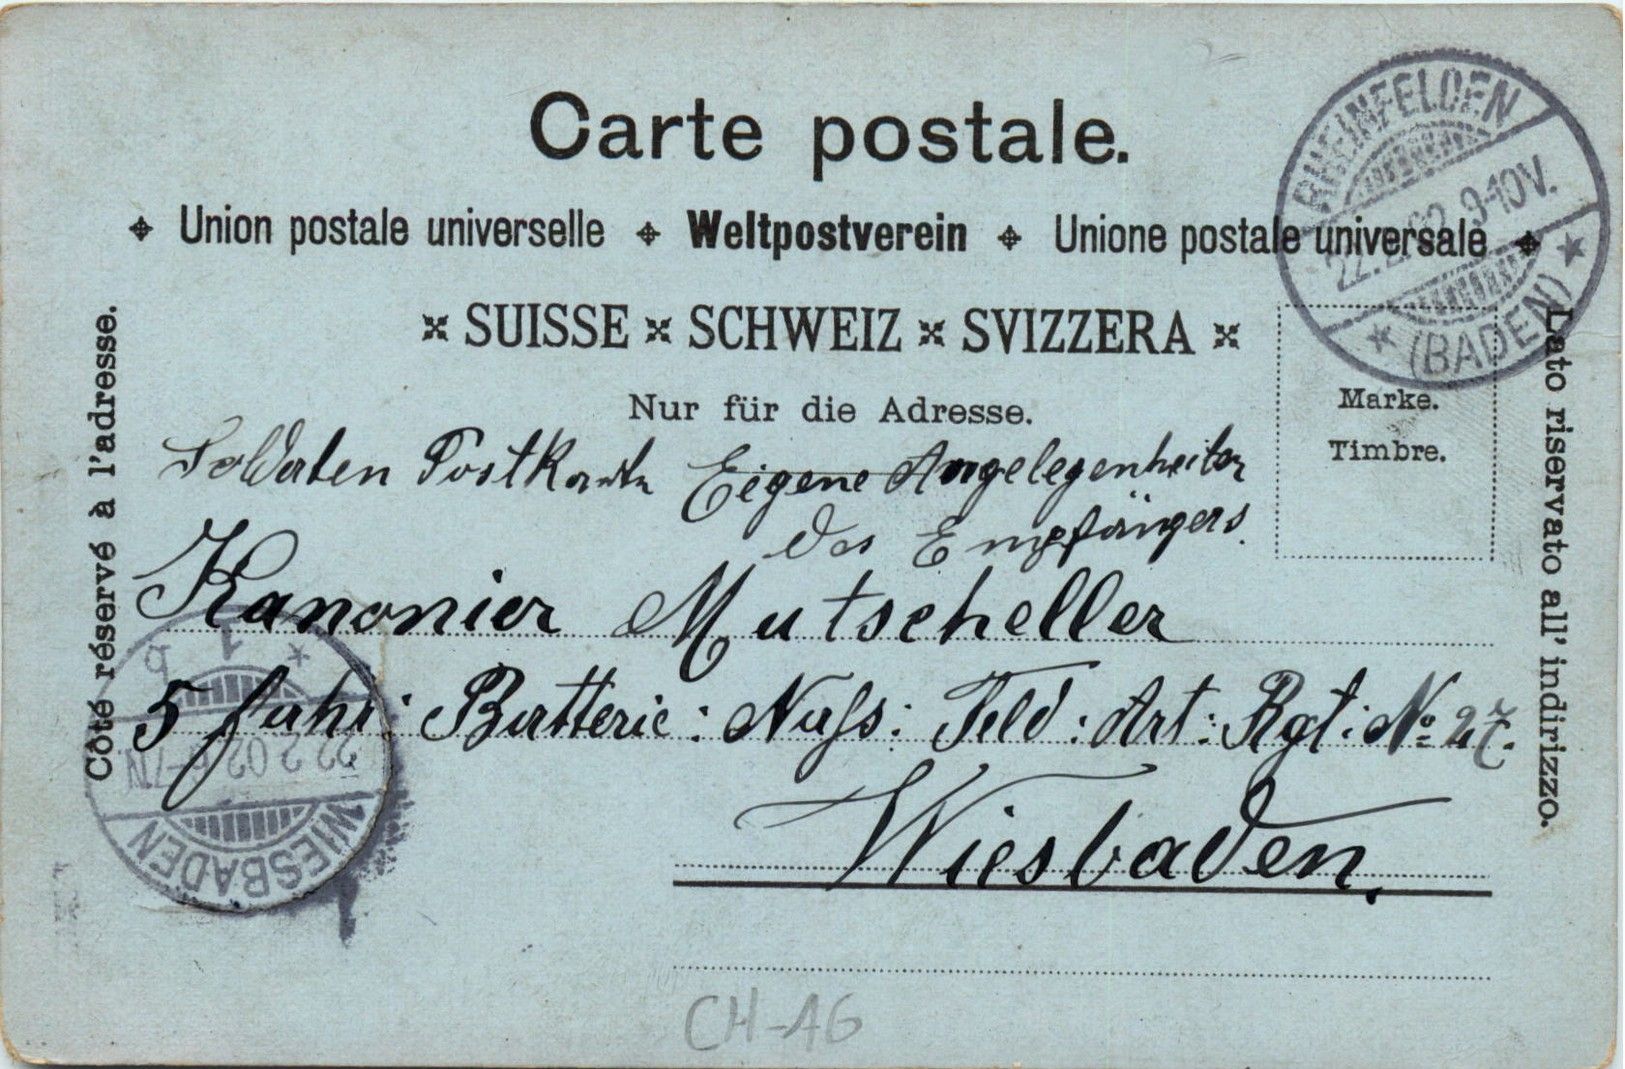 Carte postale.
Union postale universelle Weltpostverein Unione postale universale
SUISSE SCHWEIZ SVIZZERA
Nur für die Adresse.
Côté réservé à l'adresse.
Lato riservato all' indirizzo.
Marke.
Timbre.
RHEINFELDEN
22.2.02. 9-10V.
(BADEN)
Soldaten Postkarte Eigene Angelegenheiten
des Empfängers.
Kanonier Mutscheller
5 fahr: Batterie: Nass: Feld: Art: Rgt: No 27.
Wiesbaden.
WIESBADEN
22.2.02 6-7N
1 b
CH-AG